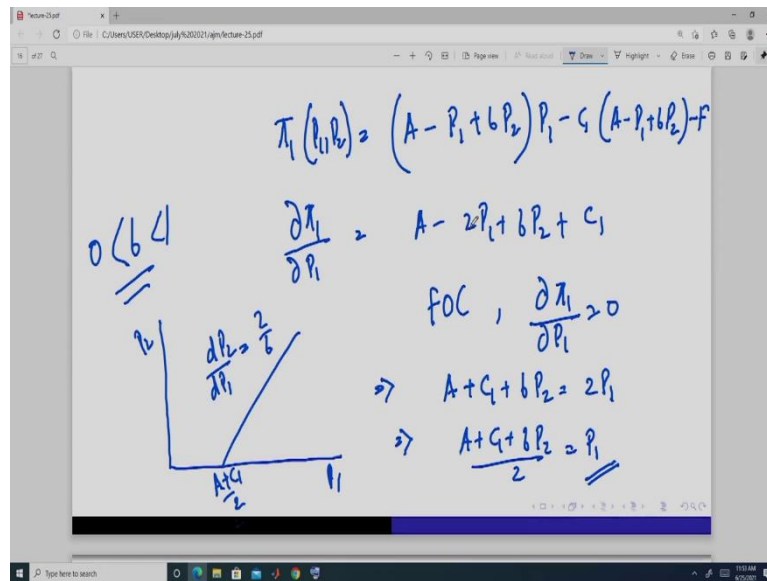 "lecture-25.pdf
File | C:/Users/USER/Desktop/july%202021/ajm/lecture-25.pdf
16 of 27
Page view
Read aloud
Draw
Highlight
Erase
π₁(P₁, P₂) = (A - P₁ + bP₂) P₁ - C₁ (A - P₁ + bP₂) - F
0 < b < 1
∂π₁/∂P₁ = A - 2P₁ + bP₂ + C₁
FOC, ∂π₁/∂P₁ = 0
P₂
dP₂/dP₁ = 2/b
⇒ A + C₁ + bP₂ = 2P₁
⇒ (A + C₁ + bP₂)/2 = P₁
(A + C₁)/2
P₁
Type here to search
11:53 AM
6/25/2021